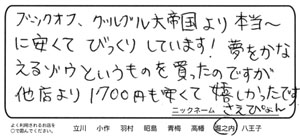 ブックオフ、グルグル大帝国より本当〜
に安くてびっくりしています！夢をかな
えるゾウというものを買ったのですが
他店より1700円も安くて嬉しかったです
ニックネーム さえぴょん
よく利用されるお店を
○で囲んでください。
立川 小作 羽村 昭島 青梅 高幡 堀之内 八王子